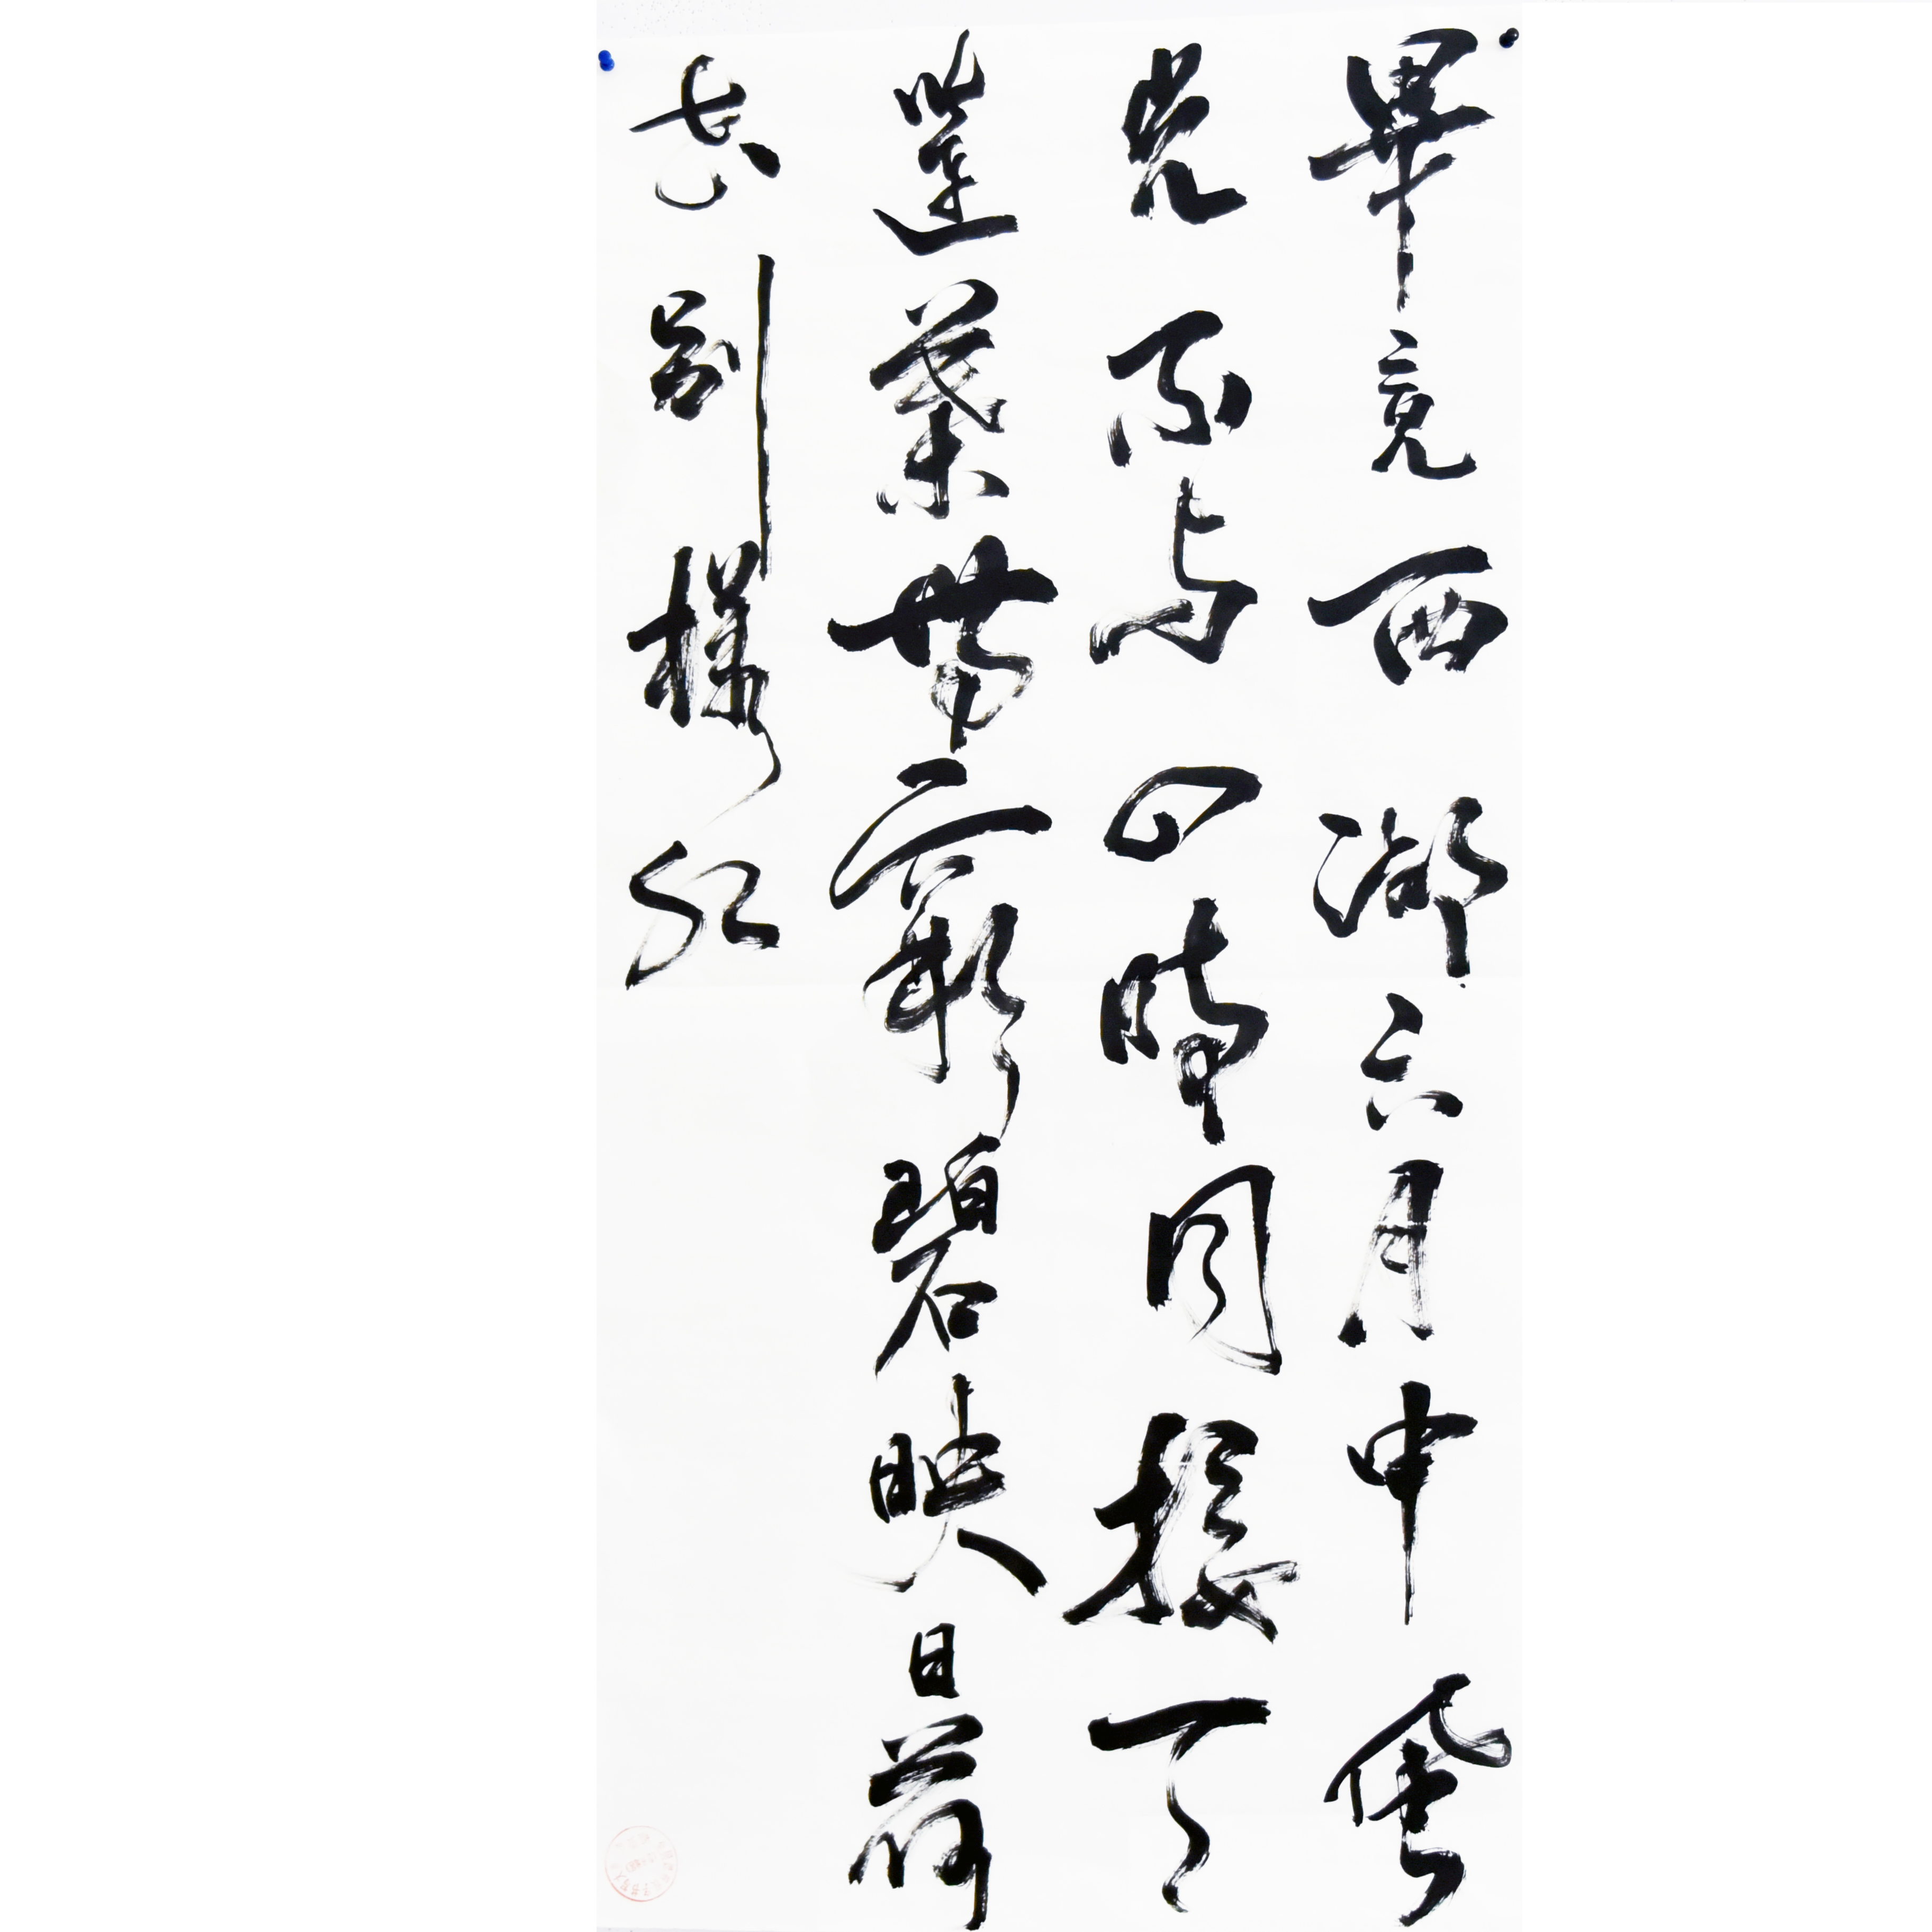 畢竟西湖六月中風
光不与四時同接天
蓮葉無窮碧映日荷
花別樣紅